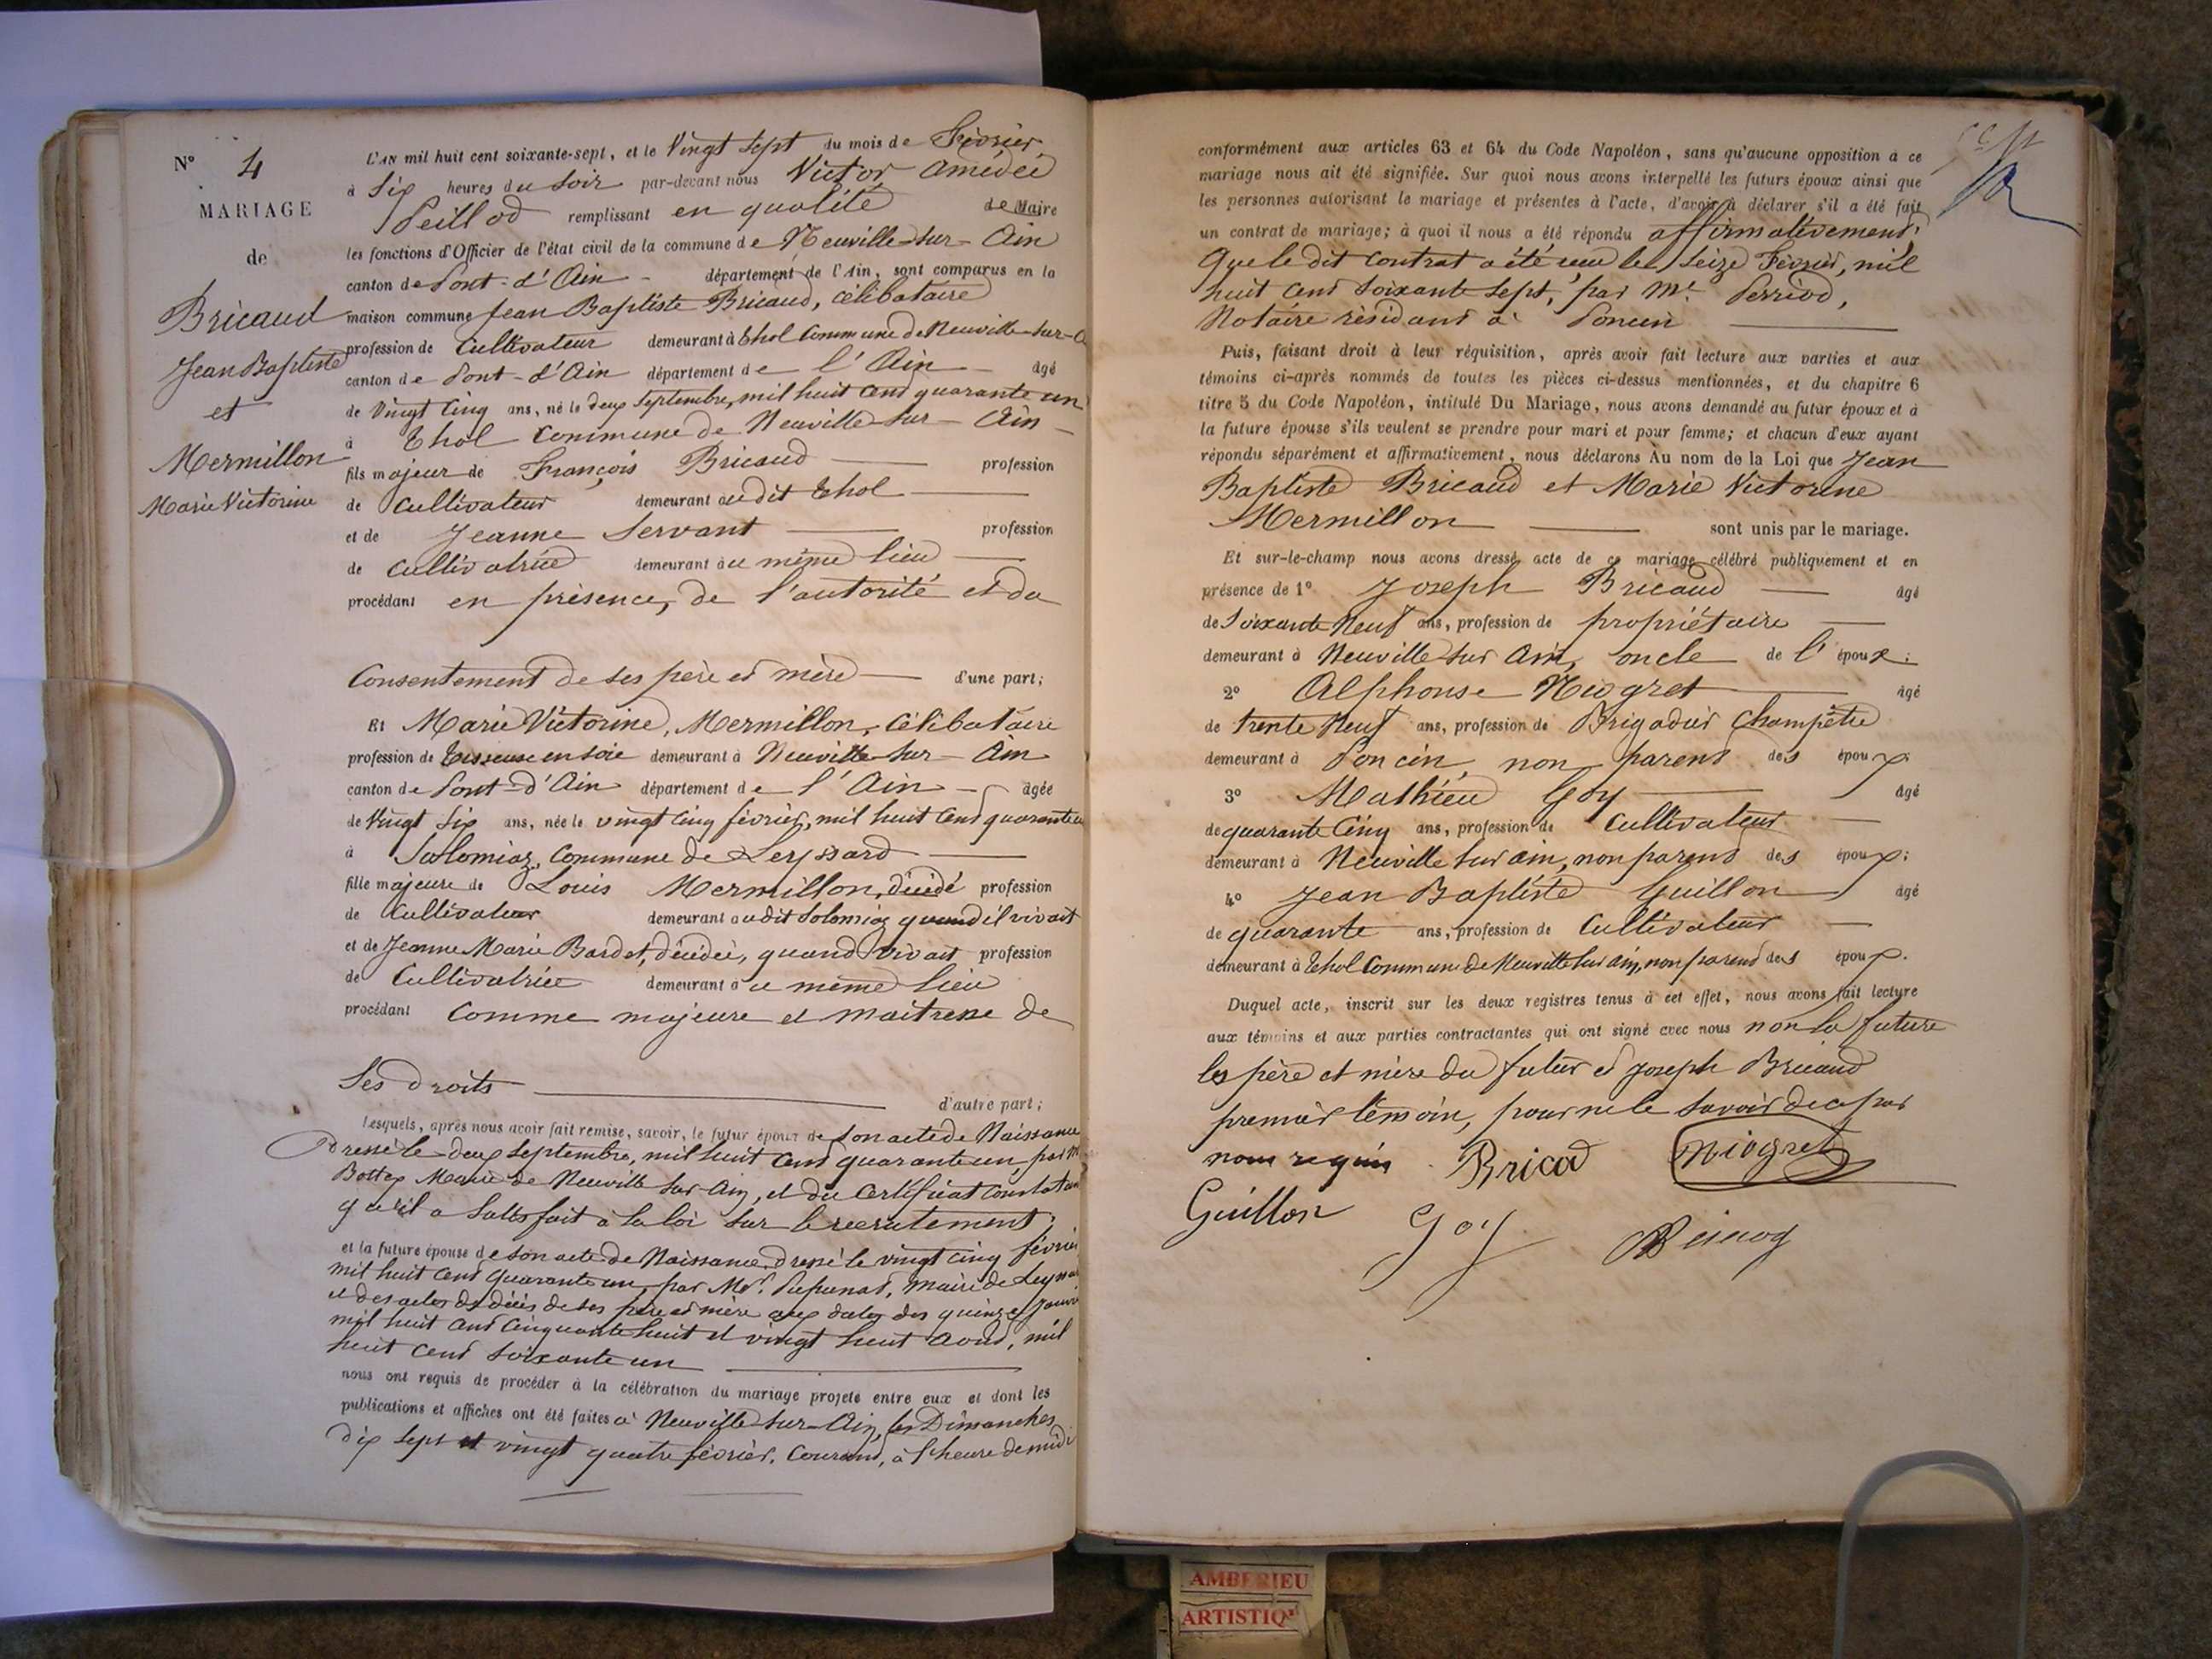 N° 4
MARIAGE
de
Bricaud
Jean Baptiste
et
Mermillon
Marie Victorine
L'AN mil huit cent soixante-sept, et le Vingt Sept du mois de Février
à Six heures du Soir par-devant nous Victor Amédée
Peillod remplissant en qualité de Maire
les fonctions d'Officier de l'état civil de la commune de Neuville-sur-Ain
canton de Pont-d'Ain - département de l'Ain, sont comparus en la
maison commune Jean Baptiste Bricaud, célibataire
profession de Cultivateur demeurant à Thol Commune de Neuville-sur-A
canton de Pont-d'Ain département de l'Ain - âgé
de Vingt Cinq ans, né le deux Septembre, mil huit cent quarante un
à Thol Commune de Neuville-sur-Ain -
fils majeur de François Bricaud — profession
de Cultivateur demeurant audit Thol —
et de Jeanne Servant — profession
de Cultivatrice demeurant au même lieu —
procédant en présence, de l'autorité et du
Consentement de ses père et mère — d'une part;
Et Marie Victorine, Mermillon, Célibataire
profession de Tisseuse en soie demeurant à Neuville-sur-Ain
canton de Pont-d'Ain département de l'Ain - âgée
de Vingt Six ans, née le vingt Cinq février, mil huit Cent quarante u
à Solomiaz, Commune de Leyssard —
fille majeure de Louis Mermillon, décédé profession
de Cultivateur demeurant audit Solomiaz quand il vivait
et de Jeanne Marie Bardet, décédée, quand vivait profession
de Cultivatrice demeurant au même lieu
procédant Comme majeure et maitresse de
Ses droits — d'autre part;
Lesquels, après nous avoir fait remise, savoir, le futur époux de Son acte de Naissance
Dressé le deux Septembre, mil huit Cent quarante un, par M
Bottex Maire de Neuville sur Ain, et du Certificat Constatant
qu'il a Satisfait à la loi sur le recrutement;
et la future épouse de son acte de Naissance, dressé le vingt cinq février
mil huit Cent quarante un, par Mr. maire de Leyssar
et des actes de décès de ses père et mère aux dates des quinze Janvi
mil huit Cent Cinquante huit et vingt huit Aout, mil
huit Cent soixante un —
nous ont requis de procéder à la célébration du mariage projeté entre eux et dont les
publications et affiches ont été faites à Neuville-sur-Ain, les Dimanches
dix Sept et vingt quatre février, Courant, à l'heure de midi
conformément aux articles 63 et 64 du Code Napoléon, sans qu'aucune opposition à ce
mariage nous ait été signifiée. Sur quoi nous avons interpellé les futurs époux ainsi que
les personnes autorisant le mariage et présentes à l'acte, d'avoir à déclarer s'il a été fait
un contrat de mariage; à quoi il nous a été répondu affirmativement,
Que le dit Contrat a été reçu le, Seize Février, mil
huit Cent Soixante Sept, par Me. Perriod,
Notaire résidant à Poncin —
Puis, faisant droit à leur réquisition, après avoir fait lecture aux parties et aux
témoins ci-après nommés de toutes les pièces ci-dessus mentionnées, et du chapitre 6
titre 5 du Code Napoléon, intitulé Du Mariage, nous avons demandé au futur époux et à
la future épouse s'ils veulent se prendre pour mari et pour femme; et chacun d'eux ayant
répondu séparément et affirmativement, nous déclarons Au nom de la Loi que Jean
Baptiste Bricaud et Marie Victorine
Mermillon — sont unis par le mariage.
Et sur-le-champ nous avons dressé acte de ce mariage célébré publiquement et en
présence de 1° Joseph Bricaud — âgé
de Soixante Neuf ans, profession de propriétaire —
demeurant à Neuville sur Ain, oncle de l'époux;
2° Alphonse Niogret — âgé
de trente Neuf ans, profession de Brigadier Champêtre
demeurant à Poncin, non parent des époux;
3° Mathieu Goy — âgé
de quarante Cinq ans, profession de Cultivateur —
demeurant à Neuville sur ain, non parent des époux;
4° Jean Baptiste Guillon âgé
de quarante ans, profession de Cultivateur —
demeurant à Thol Commune de Neuville sur ain, non parent des époux.
Duquel acte, inscrit sur les deux registres tenus à cet effet, nous avons fait lecture
aux témoins et aux parties contractantes qui ont signé avec nous non la future
les père et mère du futur et Joseph Bricaud
premier témoin, pour ne le savoir de ce par
nous requis Bricod Niogret
Guillon Goy
AMBERIEU
ARTISTIQ